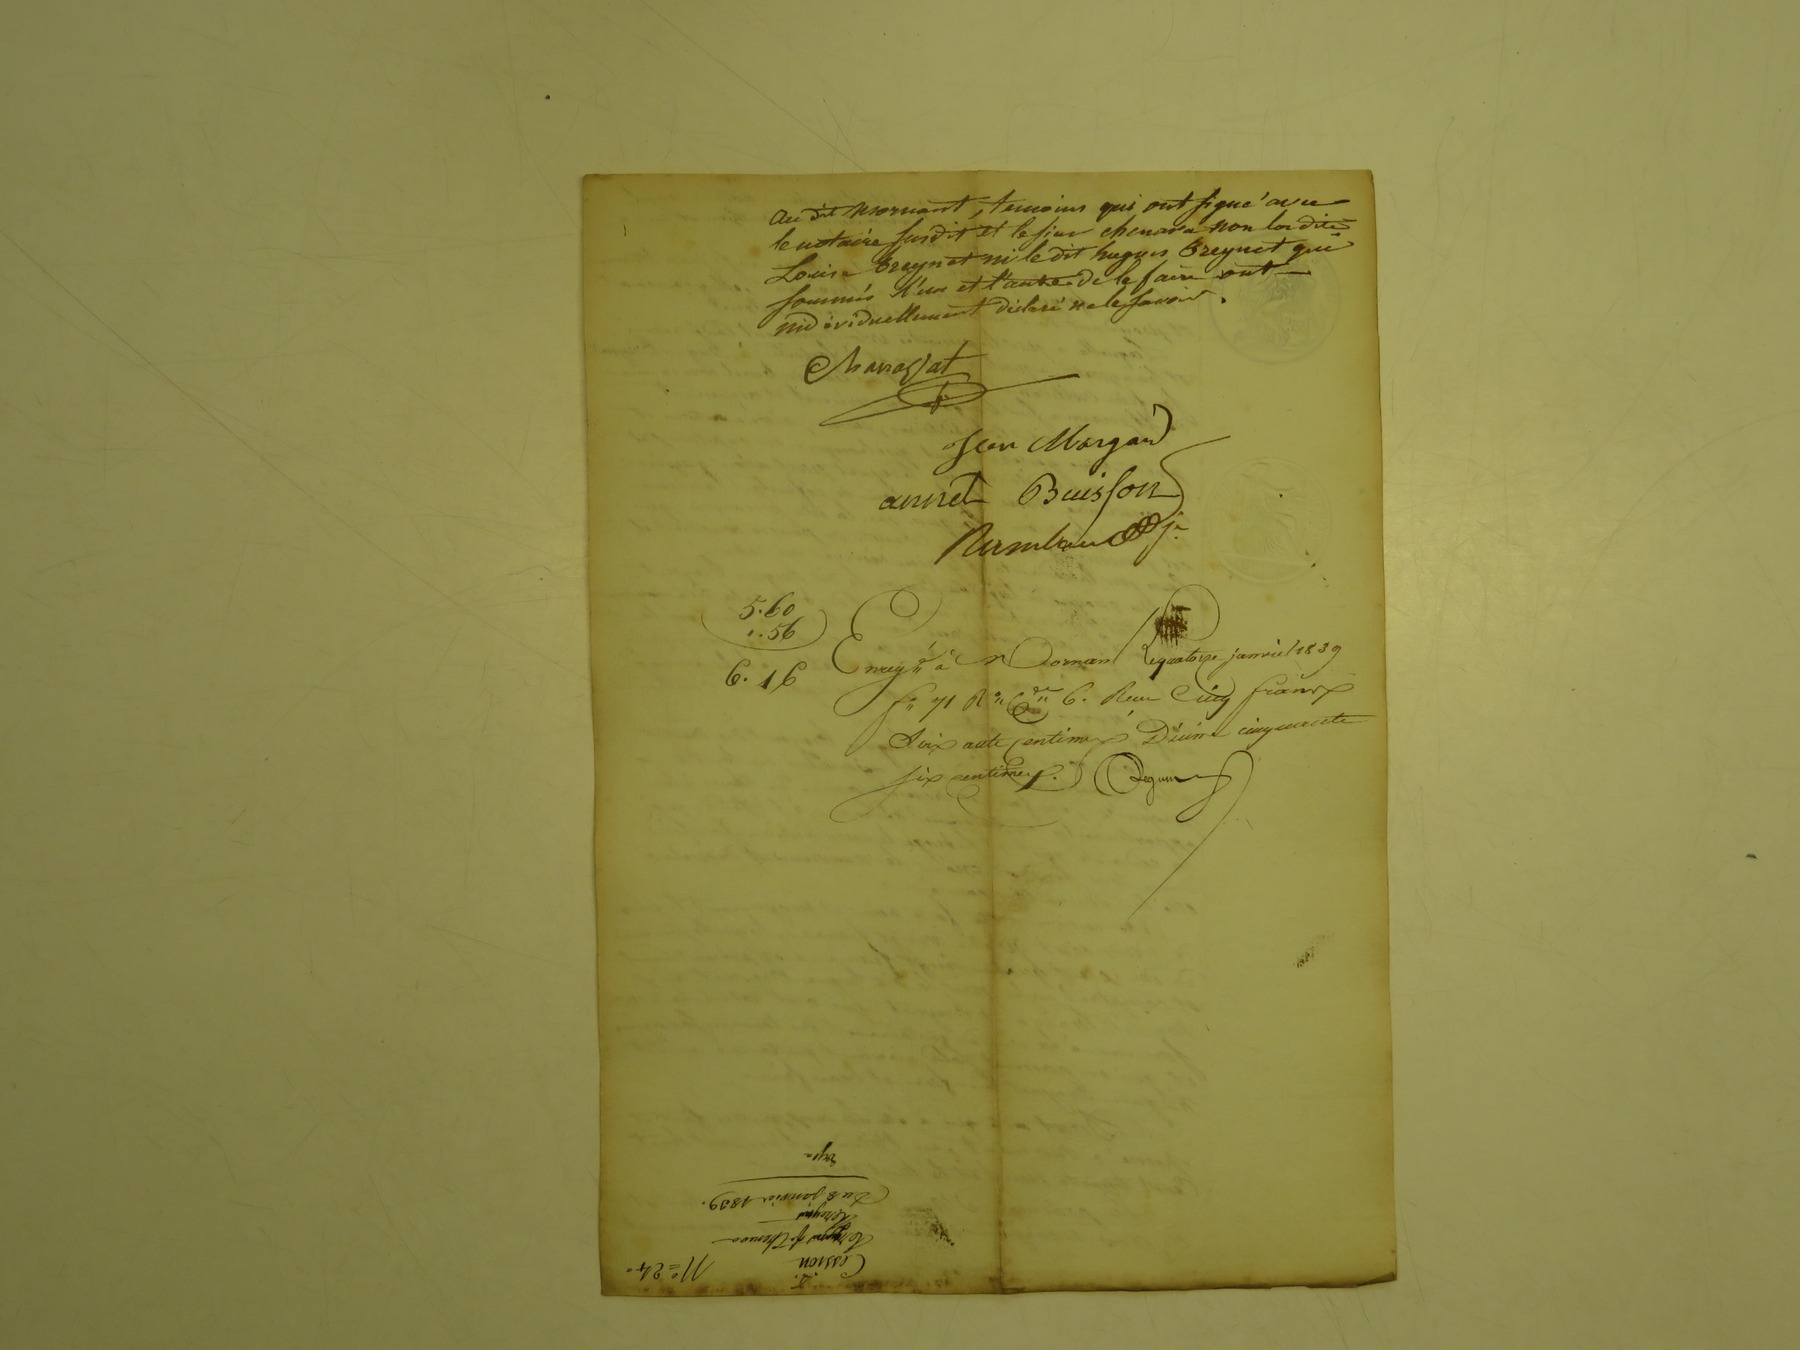 au dit Mornant, temoins qui ont signé avec
le notaire susdit et le sieur chenava non la dite
Louise Breynat ni le dit hugues Breynat qui
sommés l'un et l'autre de le faire ont
individuellement déclaré ne le savoir.
Jean Margand
annet Buisson
Rambaud jn
5.60
..56
6.16
Enregré à Mornant le quatorze janvier 1839
fo 71 Ro Ce 6. Reçu Cinq francs
soixante centimes Décime cinquante
six centimes.
No=24.
Cession
Du 8 janvier 1839.